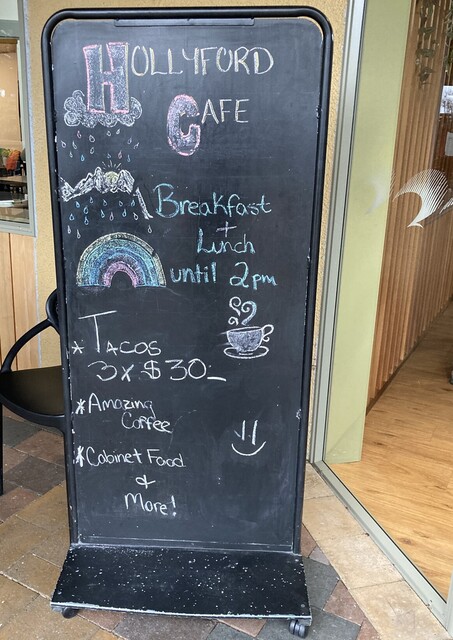 HOLLYFORD
CAFE
Breakfast
+
Lunch
until 2pm
* TACOS
3x $30_
* Amazing
Coffee
* Cabinet Food
&
More!